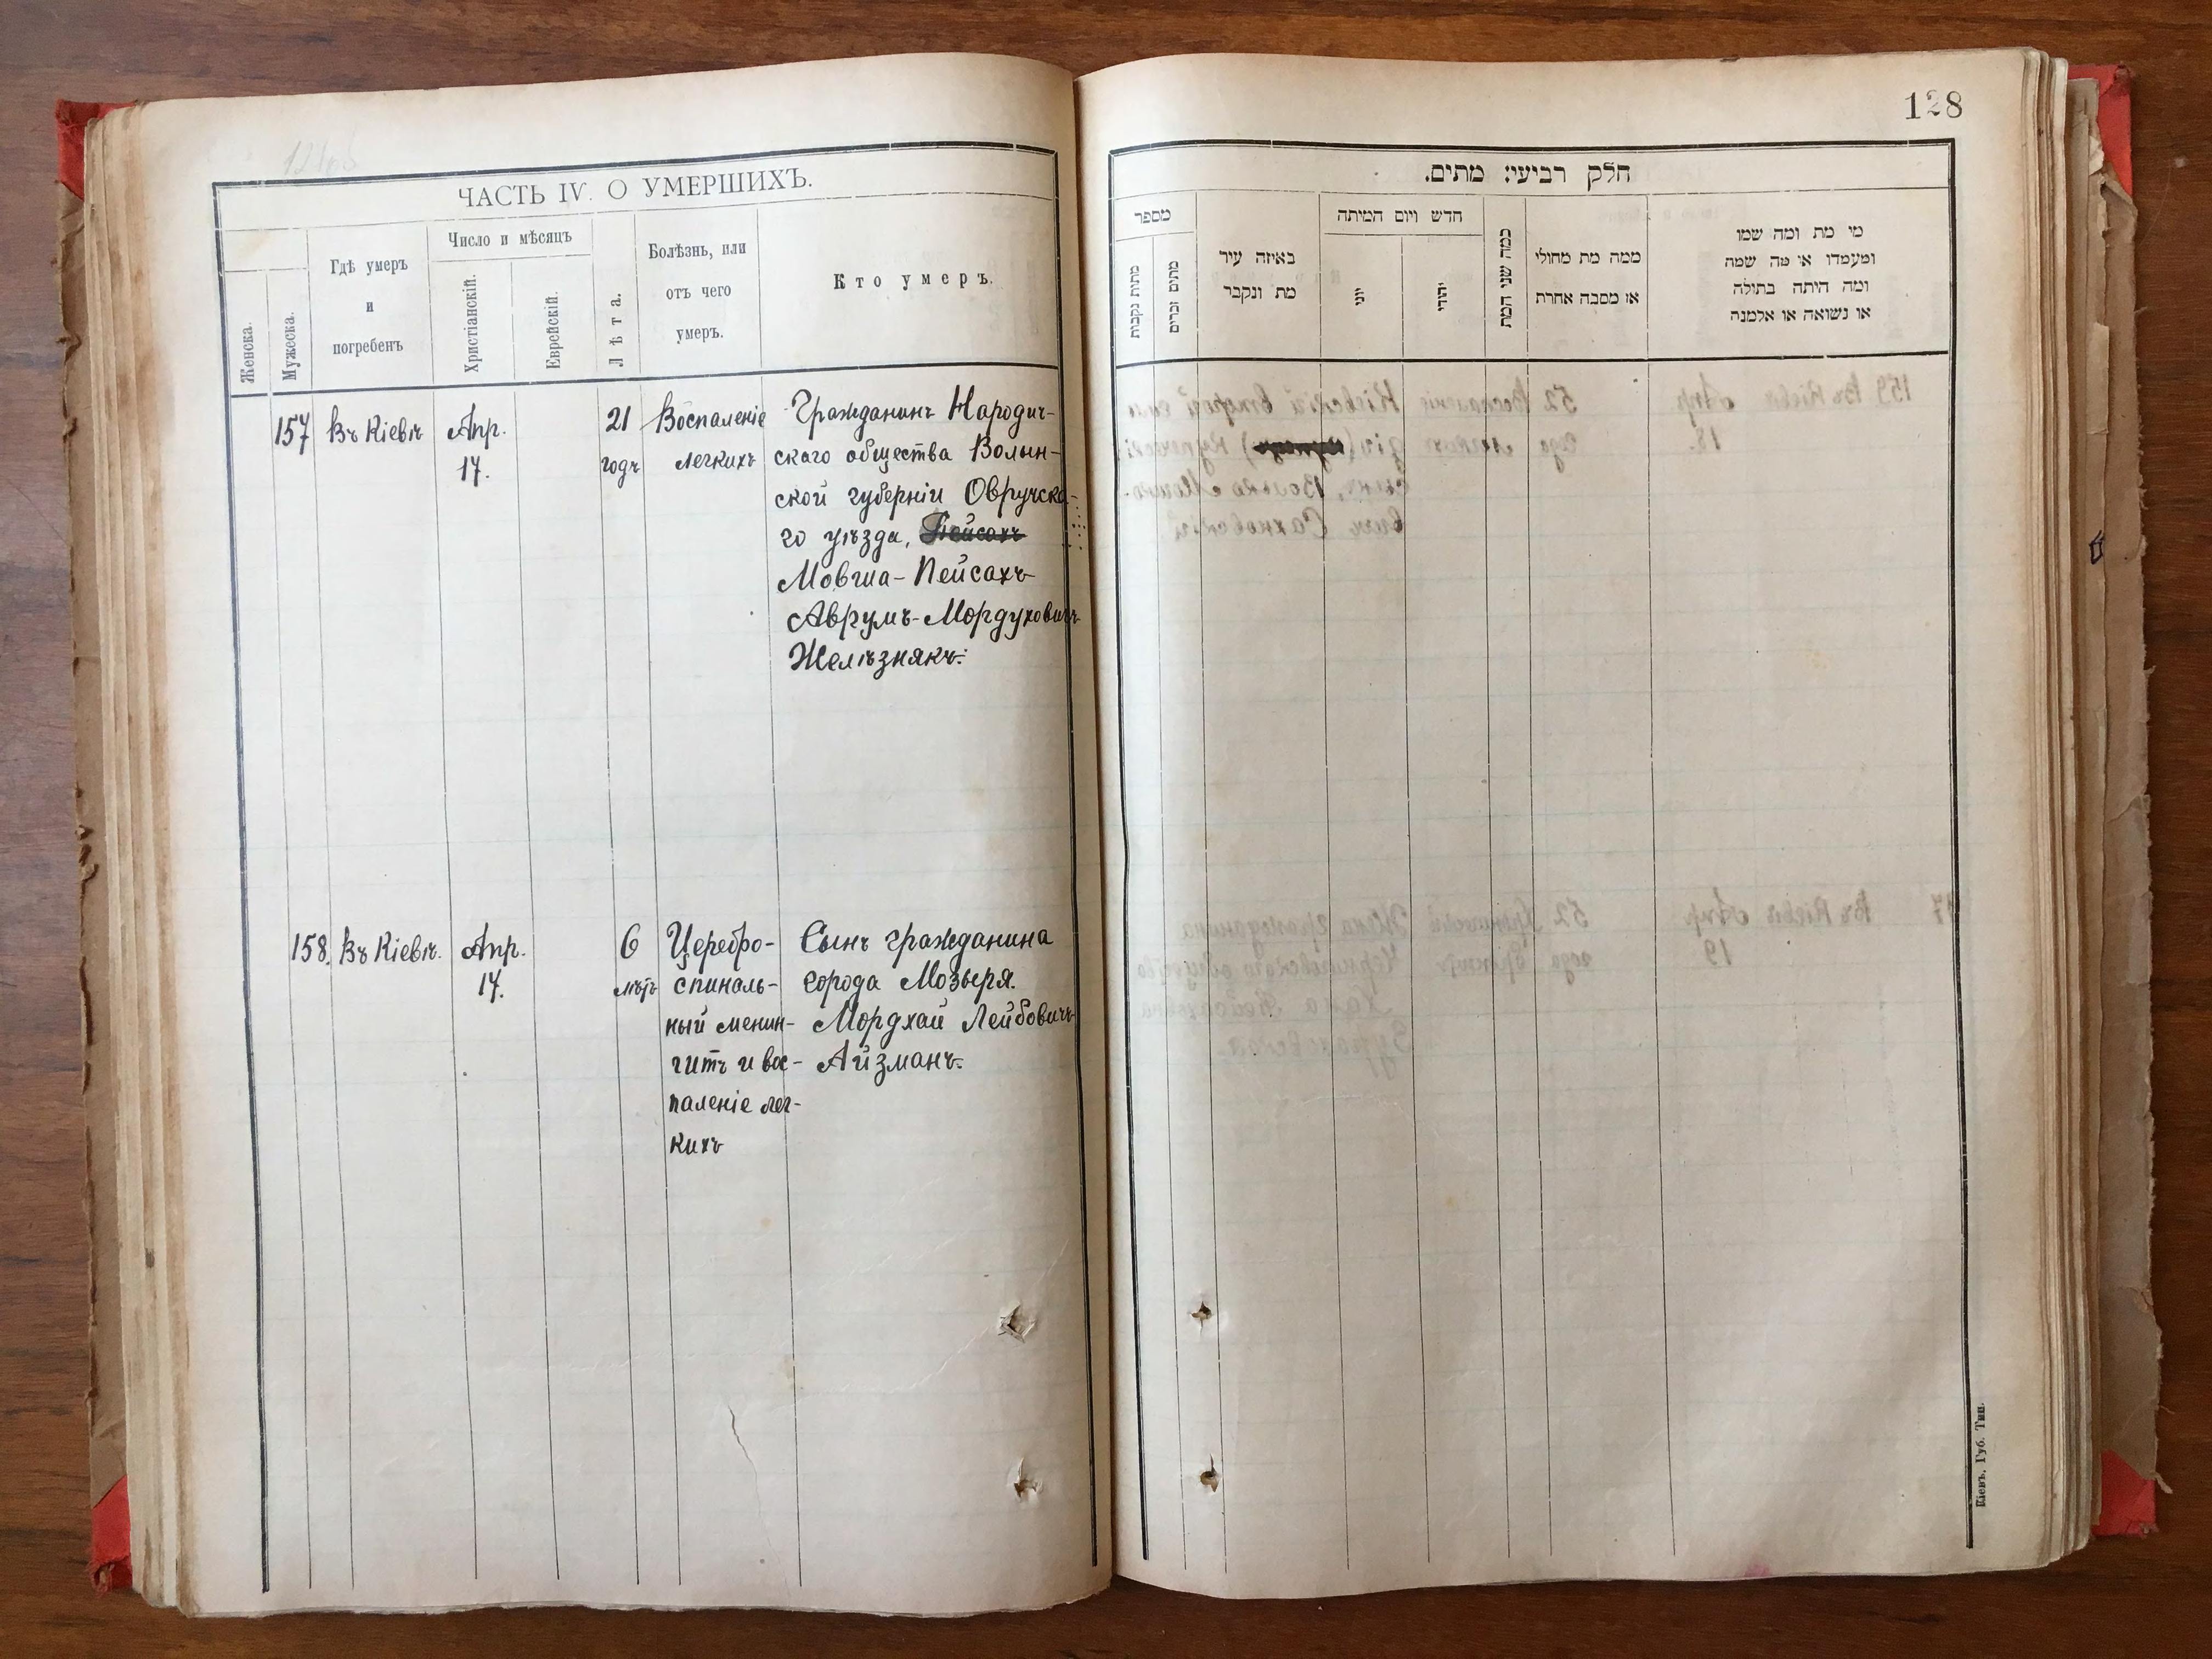 ЧАСТЬ IV. О УМЕРШИХЪ.
Женска.
Мужеска.
Гдѣ умеръ
и
погребенъ
Число и мѣсяцъ
Христіанскій.
Еврейскій.
Лѣта.
Болѣзнь, или
отъ чего
умеръ.
Кто умеръ.
157
Въ Кіевѣ
Апр.
17.
21
годъ
Воспаленіе
легкихъ
Гражданинъ Народич-
скаго общества Волын-
ской губерніи Овручска-
го уѣзда, Пейсахъ
Мовша-Пейсахъ
Аврумъ-Мордуховичъ
Желѣзнякъ.
158.
Въ Кіевѣ.
Апр.
17.
6
лѣтъ
Церебро-
спиналь-
ный менин-
гитъ и вос-
паленіе лег-
кихъ
Сынъ гражданина
города Мозыря.
Мордхай Лейбовичъ
Айзманъ.
128
חלק רביעי: מתים.
מספר
מתות נקבות
מתים זכרים
באיזה עיר
מת ונקבר
חדש ויום המיתה
יוני
יהודי
כמה שני המת
ממה מת מחולי
או מסבה אחרת
מי מת ומה שמו
ומעמדו או מה שמה
ומה היתה בתולה
או נשואה או אלמנה
Кіевъ. Губ. Тип.